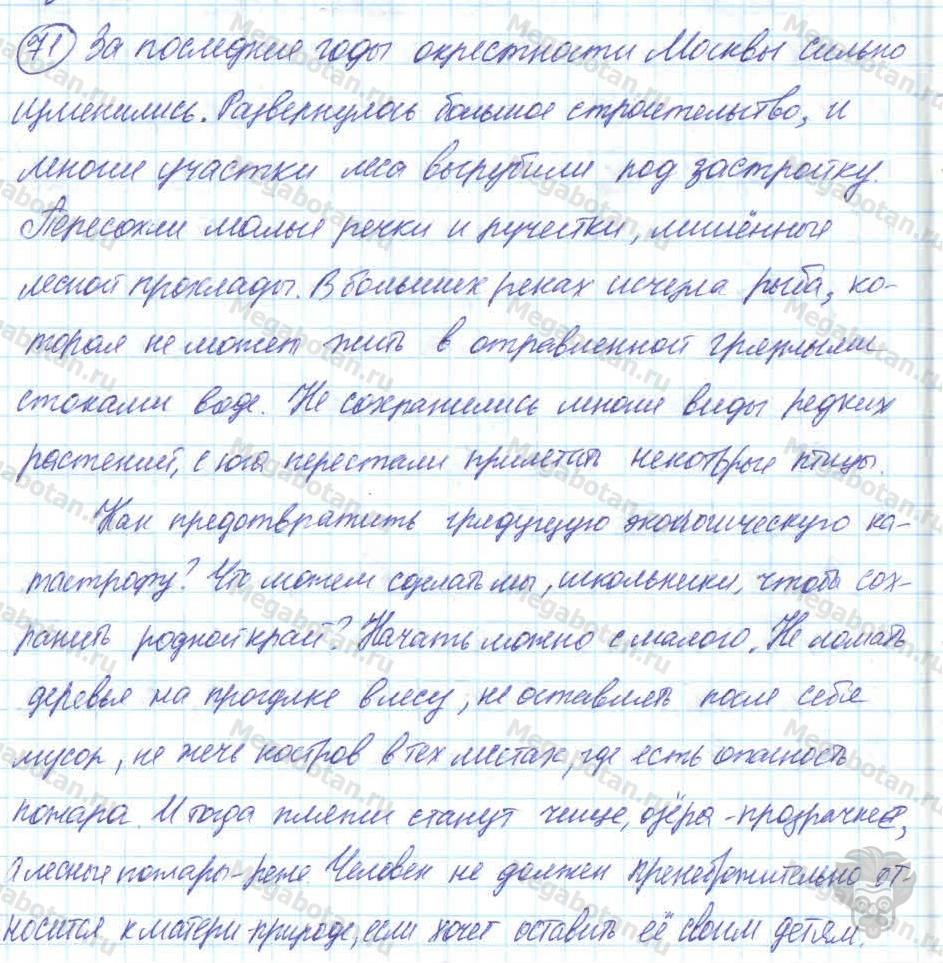 71 За последние годы окрестности Москвы сильно
изменились. Развернулось большое строительство, и
многие участки леса вырубили под застройку.
Пересохли малые речки и ручейки, лишённые
лесной прохлады. В больших реках исчезла рыба, ко-
торая не может жить в отравленной грязными
стоками воде. Не сохранились многие виды редких
растений, с юга перестали прилетать некоторые птицы.
Как предотвратить грядущую экологическую ка-
тастрофу? Что можем сделать мы, школьники, чтобы сох-
ранить родной край? Начать можно с малого. Не ломать
деревья на прогулке в лесу, не оставлять после себя
мусор, не жечь костров в тех местах, где есть опасность
пожара. И тогда пляжи станут чище, озёра - прозрачнее,
а лесные пожары - реже. Человек не должен пренебрежительно от-
носится к матери-природе, если хочет оставить её своим детям.
Megabotan.ru